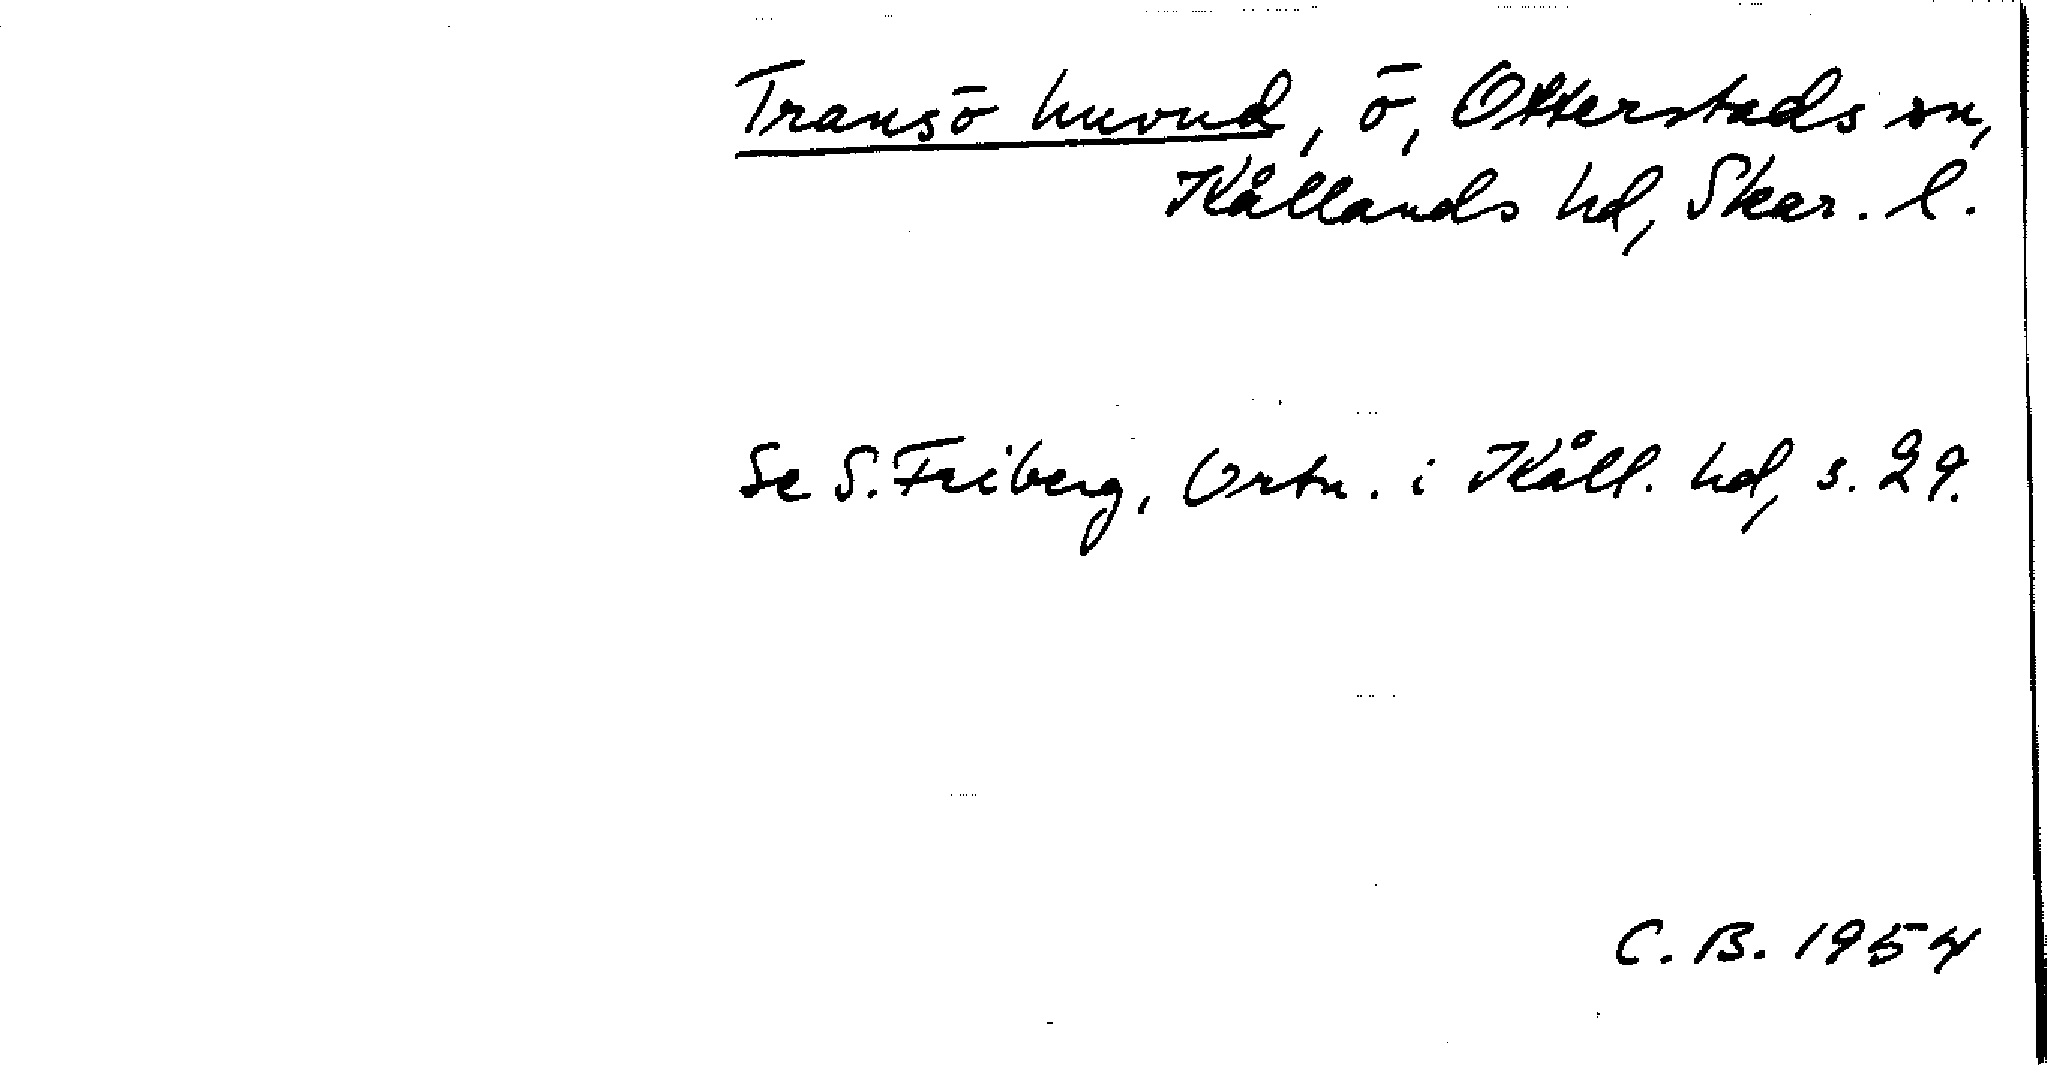 Transö huvud, ö, Otterstads sn,
Kållands hd, Skar. l.
Se S. Friberg, Ortn. i Kåll. hd, s. 29.
C. B. 1954